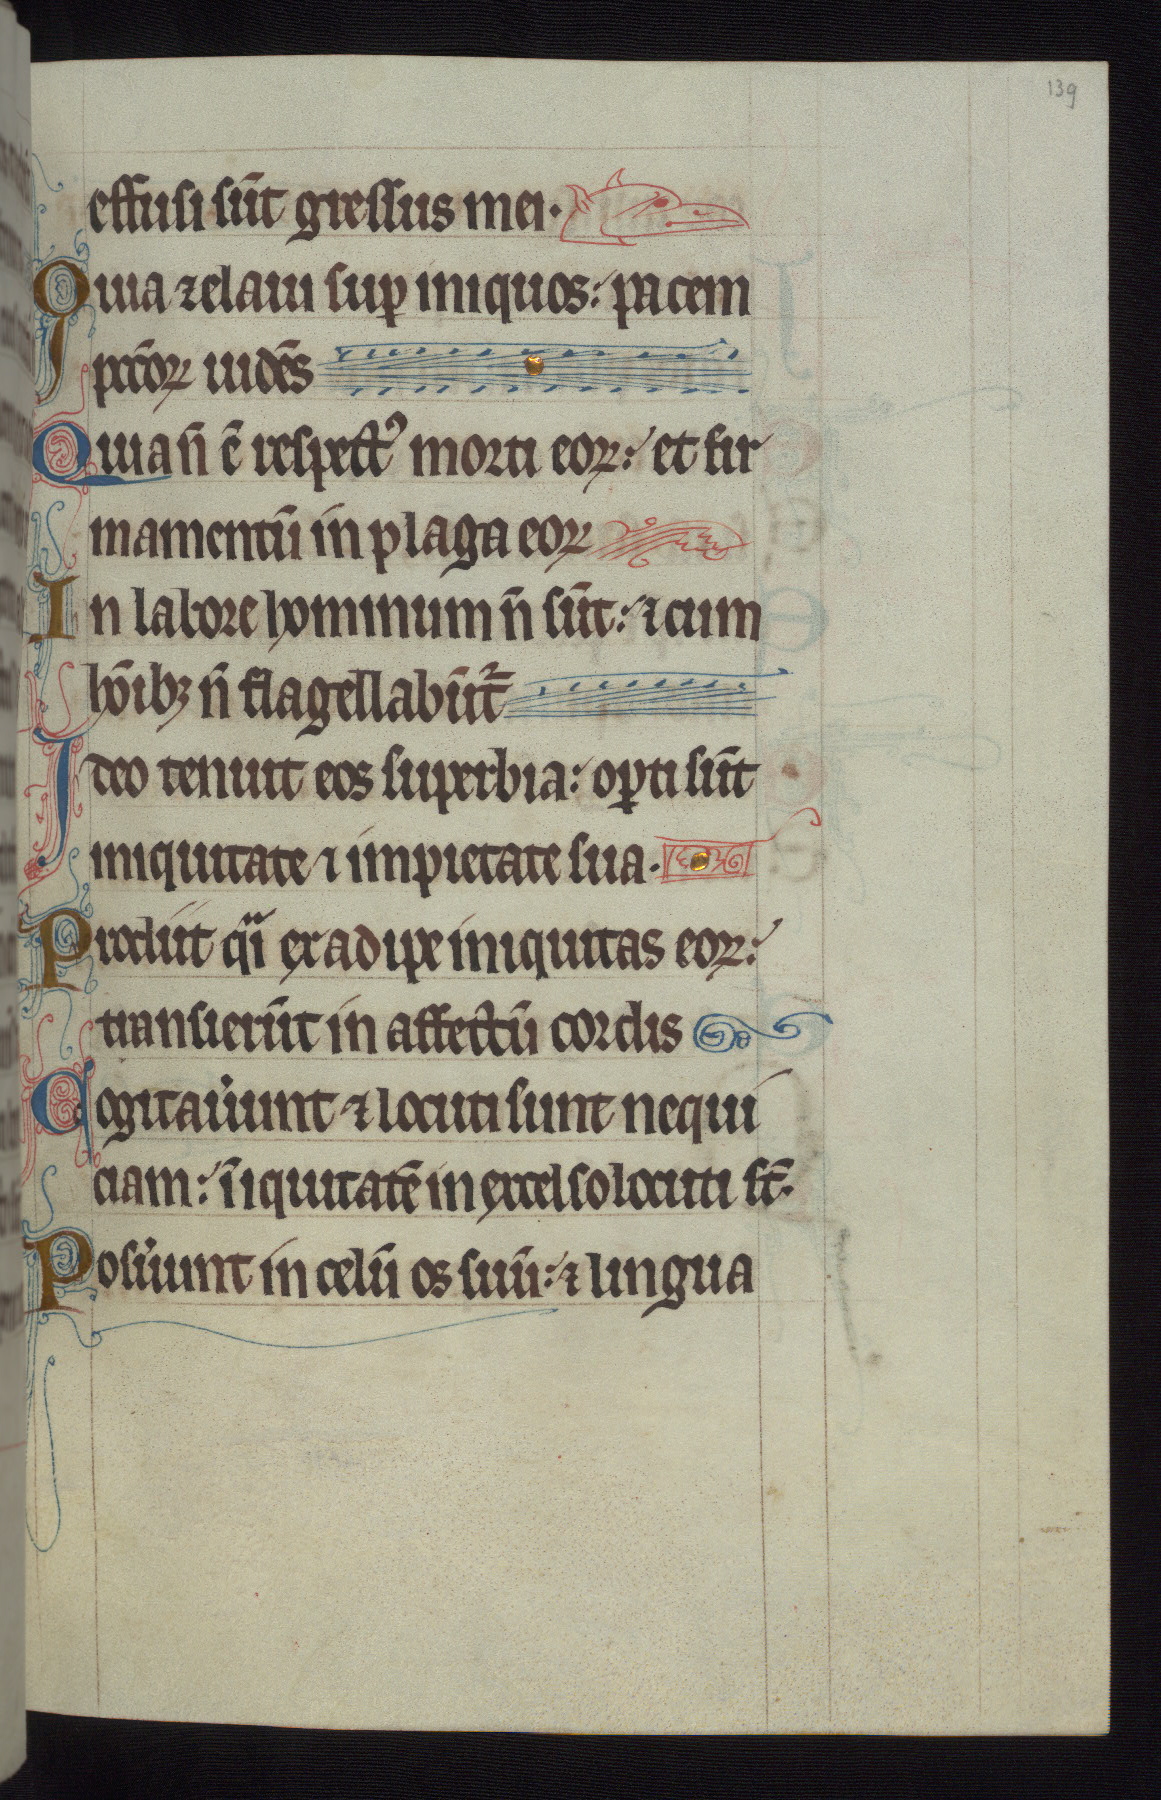 139
effusi sūt gressus mei·
Quia zelaui sup̄ iniquos: pacem
pctōꝝ uidēs
Quia n̄ ē respectꝰ morti eoꝝ: et fir
mamentū in plaga eoꝝ
In labore hominum n̄ sūt: ⁊ cum
hōibꝫ n̄ flagellabūt᷑
Ideo tenuit eos superbia: op̄ti sūt
iniquitate ⁊ impietate sua·
Prodiit qͣi ex adipe iniquitas eoꝝ:
transierūt in affectū cordis
Cogitauͬunt ⁊ locuti sunt nequi
ciam: īiquitatē in excelso locuti st̄·
Posuͬunt in celū os suū: ⁊ lingua